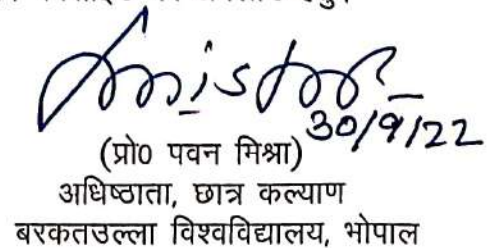 30/9/22
(प्रो0 पवन मिश्रा)
अधिष्ठाता, छात्र कल्याण
बरकतउल्ला विश्वविद्यालय, भोपाल